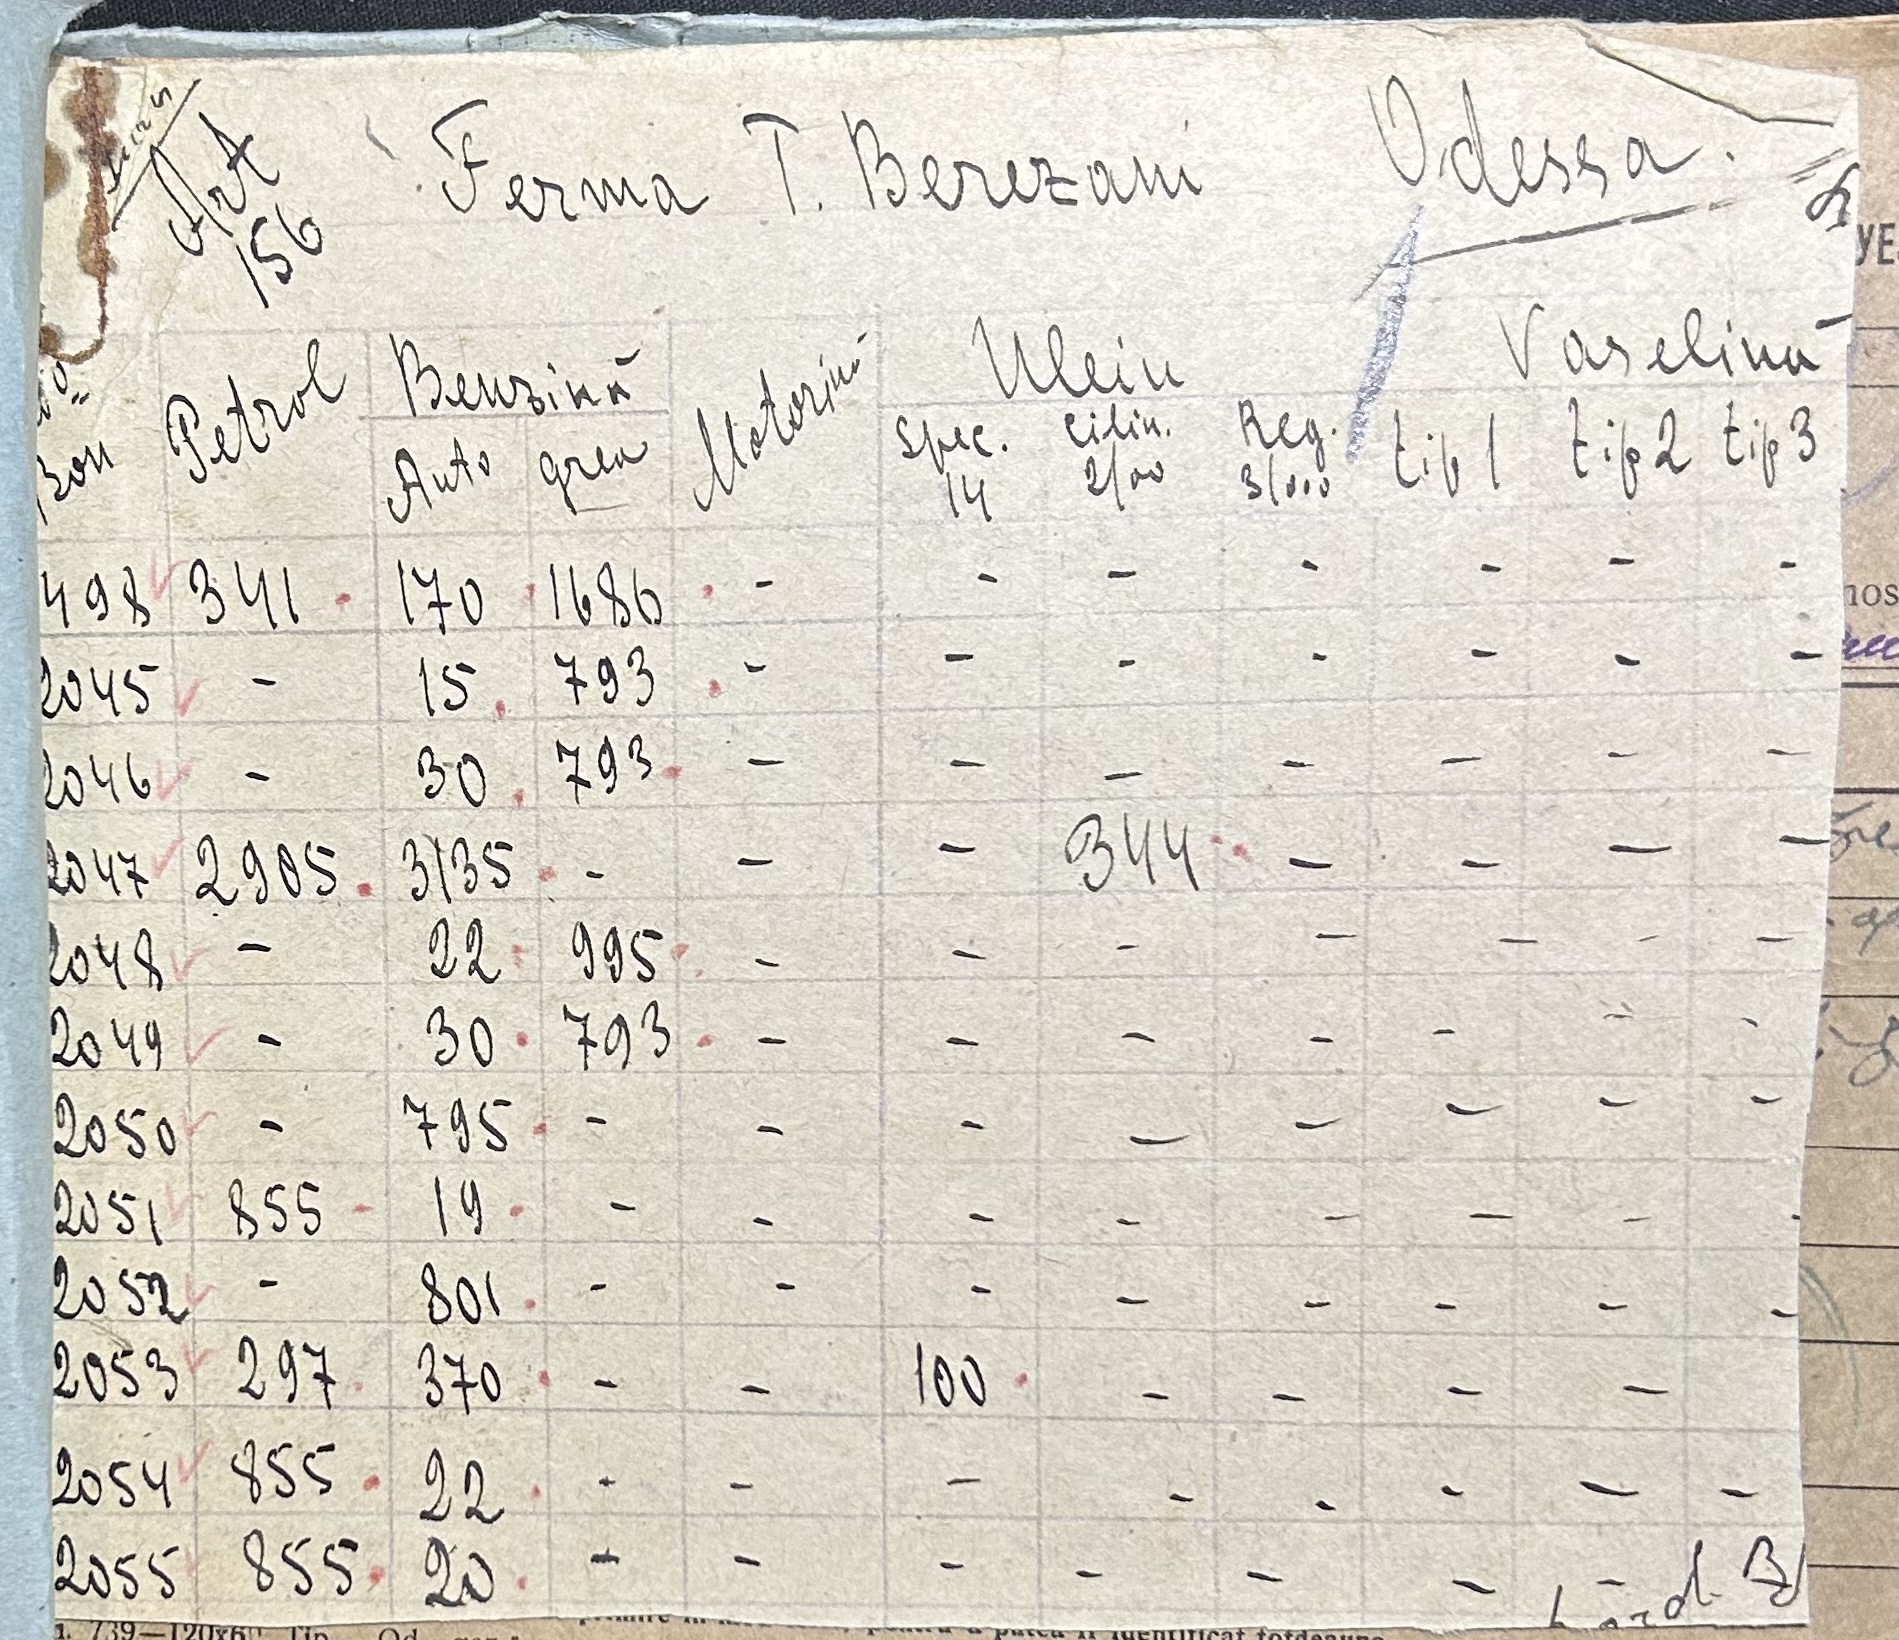 Art
156
Ferma T. Berezani Odessa.
Bon Petrol Benzină Motorină Uleiu Vaselină
Auto grea Spec. 14 Cilin. 2/00 Reg. 3/000 tip 1 tip 2 tip 3
498 341 170 1686 - - - - - - -
2045 - 15 793 - - - - - - -
2046 - 30 793 - - - - - - -
2047 2905 3135 - - - 344 - - - -
2048 - 22 995 - - - - - - -
2049 - 30 793 - - - - - - -
2050 - 795 - - - - - - - -
2051 855 19 - - - - - - - -
2052 - 801 - - - - - - - -
2053 297 370 - - 100 - - - -
2054 855 22 - - - - - - - -
2055 855 20 - - - - - - -
739—120x6 Tip. Od.
identificat totdeauna